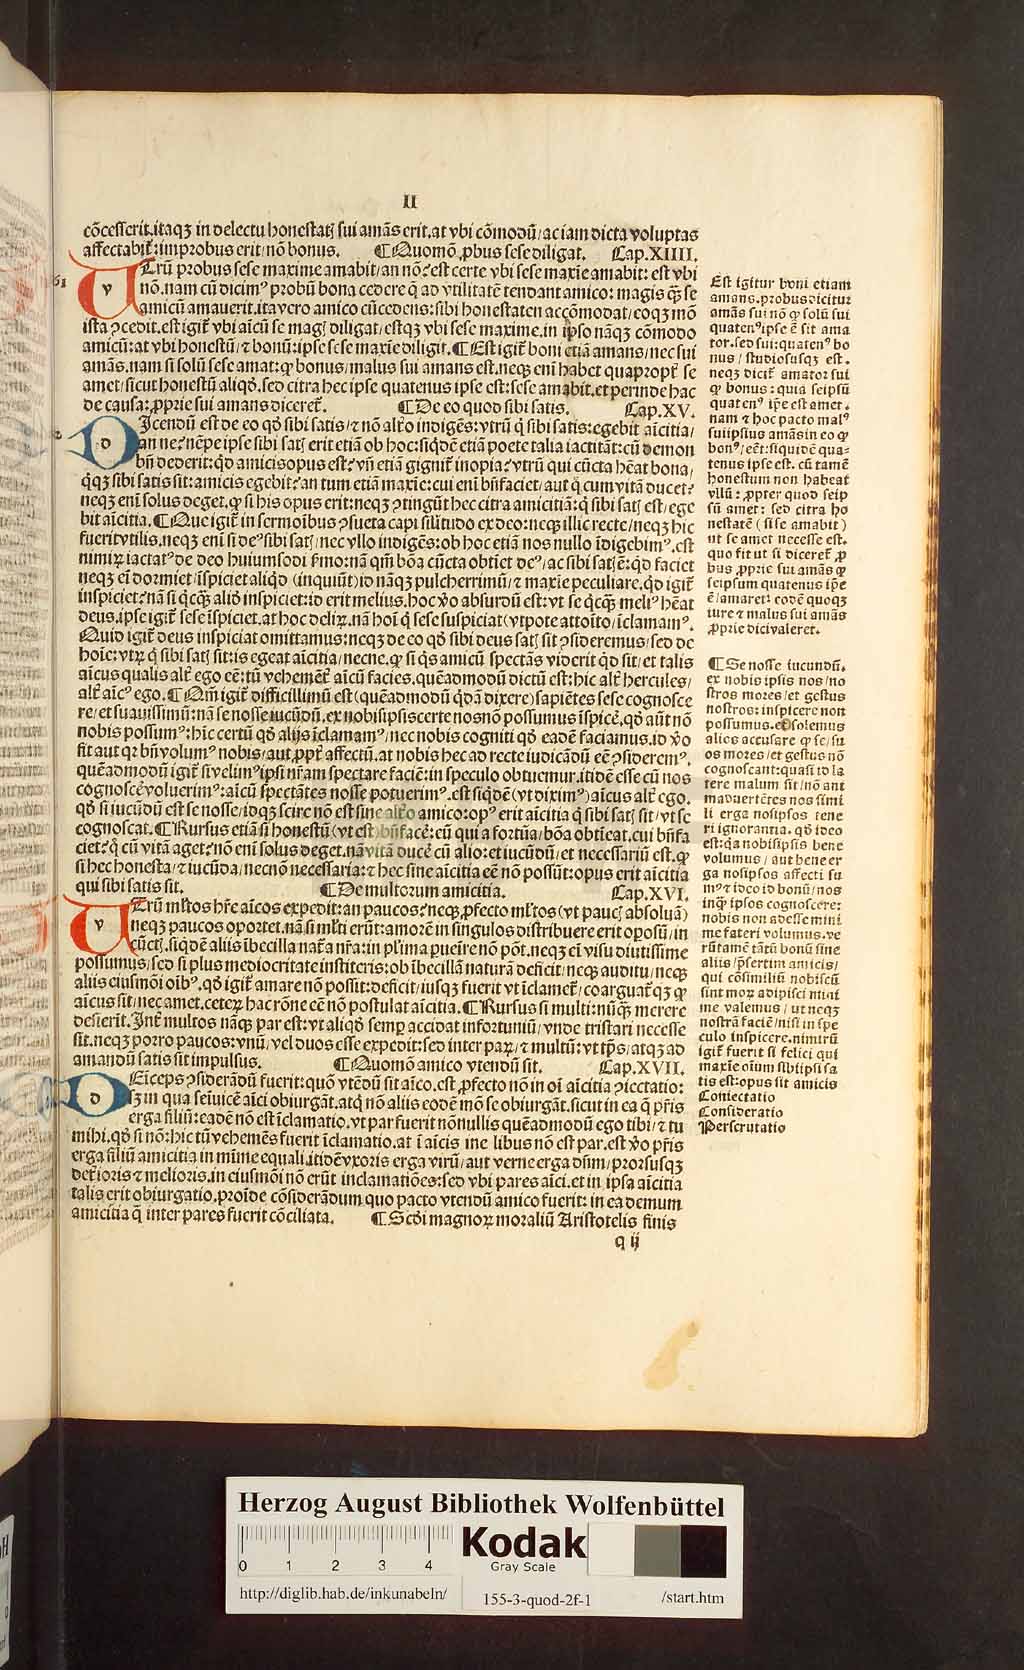 II
cōcesserit. itaqꝫ in delectu honestatꝭ sui amās erit. at vbi cōmodū / ac iam dicta voluptas
affectabit᷑: improbus erit / nō bonus. ¶Quomō ꝓbus sese diligat. Cap.XIIII.
VTrū probus sese maxime amabit / an nō? est certe vbi sese maxīe amabit: est vbi
nō. nam cū dicimꝰ probū bona cedere q̄ ad vtilitatē tendant amico: magis qꝫ̄ se
amicū amauerit. ita vero amico cūcedens: sibi honestaten accōmodat / eoqꝫ mō
ista ꝯcedit. est igit᷑ vbi aīcū se magꝭ diligat / estqꝫ vbi sese maxime. in ipso nāqꝫ cōmodo
amicū: at vbi honestū / ⁊ bonū: ipse sese maxīe diligit. ¶Est igit᷑ boni etiā amans / nec sui
amās. nam si solū sese amat: ꝙ bonus / malus sui amans est. neqꝫ enī habet quapropt᷑ se
amet / sicut honestū aliqḋ. sed citra hec ipse quatenus ipse est: sese amabit. et perinde hac
de causa: ꝓprie sui amans diceret᷑. ¶De eo quod sibi satis. Cap.XV.
DIcendū est de eo qḋ sibi satis / ⁊ nō alt᷑o indigēs: vtrū q̄ sibi satis: egebit aīcitia /
an ne? nēpe ipse sibi satꝭ erit etiā ob hoc: siqḋē etiā poete talia iactitāt: cū demon
bn̄ dederit: qḋ amicis opus est? vn̄ etiā gignit᷑ inopia? vtrū qui cūcta hēat bona /
q̇qꝫ sibi satis sit: amicis egebit? an tum etiam maxīe: cui enī bn̄faciet / aut q̄ cum vitā ducet?
neqꝫ enī solus deget. ꝙ si his opus erit: neqꝫ ꝯtingūt hec citra amicitiā: q̄ sibi satꝭ est / ege
bit aīcitia. ¶Que igit᷑ in sermoībus ꝯsueta capi silītudo ex deo: neqꝫ illic recte / neqꝫ hic
fuerit vtilis. neqꝫ enī si deꝰ sibi satꝭ / nec vllo indigēs: ob hoc etiā nos nullo īdigebimꝰ. est
nimirꝝ iactatꝰ de deo huiumsodi s̄mo: nā qm̄ bōa cūcta obtīet deꝰ / ac sibi satꝭ ē: qḋ faciet
neqꝫ eī dormiet / īspiciet aliqḋ (inquiūt) id nāqꝫ pulcherrimū / ⁊ maxīe peculiare. qḋ igit᷑
inspiciet? nā si q̇cqꝫ aliḋ inspiciet: id erit melius. hoc v̊o absurdū est: vt se q̇cqꝫ meliꝰ hēat
deus. ipse igit᷑ sese īspiciet. at hoc delirꝝ. nā hoī q̄ sese suspiciat (vtpote attoīto / īclamamꝰ.
Quid igit᷑ deus inspiciat omittamus: neqꝫ de eo qḋ sibi deus satꝭ sit ꝯsideremus / sed de
hoīe: vtrꝝ q̄ sibi satꝭ sit: is egeat aīcitia / necne. ꝙ si qs̄ amicū spectās viderit qḋ sit / et talis
aīcus qualis alt᷑ ego cē: tū vehemēt᷑ aīcū facies. quēadmodū dictū est: hic alt᷑ hercules /
alt᷑ aīcꝰ ego. ¶Qm̄ igit᷑ difficillimū est (quēadmodū qḋā dixere) sapiētes sese cognosce
re / et suauissimū: nā se nosse iucūdū. ex nobisipsis certe nos nō possumus īspicē. qḋ aūt nō
nobis possumꝰ: hīc certū qḋ alijs īclamamꝰ / nec nobis cogniti qḋ eadē faciamus. id v̊o
fit aut qꝛ bn̄ volumꝰ nobis / aut ꝓpt᷑ affectū. at nobis hec ad recte iudicādū eē ꝯsideremꝰ.
quēadmodū igit᷑ si velimꝰ ipsi nr̄am spectare faciē: in speculo obtuemur. itidē esse cū nos
cognoscē voluerimꝰ: aīcū spectātes nosse potuerimꝰ. est siqḋē (vt diximꝰ) aīcus alt᷑ ego.
qḋ si iucūdū est se nosse / idqꝫ scire nō est sine alt᷑o amico: opꝰ erit aīcitia q̄ sibi satꝭ sit / vt se
cognoscat. ¶Rursus etiā si honestū (vt est) bn̄facē: cū qui a fortūa / bōa obtīeat. cui bn̄fa
ciet? q̄ cū vitā aget? nō enī solus deget. nā vitā ducē cū alio: et iucūdū / et necessariū est. ꝙ
si hec honesta / ⁊ iucūda / necnō necessaria: ⁊ hec sine aīcitia eē nō possūt: opus erit aīcitia
qui sibi satis sit. ¶De multorum amicitia. Cap.XVI.
VTrū ml̄tos hr̄e aīcos expedit: an paucos? neqꝫ ꝓfecto ml̄tos (vt paucꝭ absoluā)
neqꝫ paucos oportet. nā si ml̄ti erūt: amorē in singulos distribuere erit oꝑosū / in
cūctꝭ. siqḋē aliis ībecilla nat᷑a nr̄a: in pl'ima ꝑueīre nō pōt. neqꝫ eī visu diutissime
possumus / sed si plus mediocritate institeris: ob ībecillā naturā deficit / neqꝫ auditu / neqꝫ
aliis eiusmōi oībꝰ. qḋ igit᷑ amare nō possit: deficit / iusqꝫ fuerit vt īclamet᷑ / coarguat᷑qꝫ ꝙ
aīcus sit / nec amet. ceteꝝ hac rōne eē nō postulat aīcitia. ¶Rursus si multi: nūqꝫ̄ merere
desierīt. Int᷑ multos nāqꝫ par est: vt aliqḋ semꝑ accidat infortuniū / vnde tristari necesse
sit. neqꝫ porro paucos: vnū / vel duos esse expedit: sed inter parꝝ / ⁊ multū: vt tp̄s / atqꝫ ad
amandū satis sit impulsus. ¶Quomō amico vtendū sit. Cap.XVII.
DEiceps ꝯsiderādū fuerit: quō vtēdū sit aīco. est ꝓfecto nō in oī aīcitia ꝯiectatio:
sꝫ in qua seiuicē aīci obiurgāt. atq̄ nō aliis eodē mō se obiurgāt. sicut in ea q̄ pr̄is
erga filiū: eadē nō est īclamatio. vt par fuerit nōnullis quēadmodū ego tibi / ⁊ tu
mihi. qḋ si nō: hic tū vehemēs fuerit īclamatio. at ī aīcis ine libus nō est par. est v̊o pr̄is
erga filiū amicitia in mīme equali. itidē vxoris erga virū / aut verne erga dn̄m / prorsusqꝫ
det᷑ioris ⁊ melioris. in eiusmōi nō erūt inclamatiōes: sed vbi pares aīci. et in ipsa aīcitia
talis erit obiurgatio. proīde cōsiderādum quo pacto vtendū amico fuerit: in ea demum
amicitia q̄ inter pares fuerit cōciliata. ¶Scḋi magnoꝝ moraliū Aristotelis finis
q ij
Est igitur boni etiam
amans. probus dicitur
amās sui nō ꝙ solū sui
quatenꝰ ipse ē sit ama
tor. sed sui: quatenꝰ bo
nus / studiosusqꝫ est.
neqꝫ dicit᷑ amator sui
ꝙ bonus: quia seipsū
quatenꝰ ip̄e est amet.
nam ⁊ hoc pacto malꝰ
sui ipsius amās in eo ꝙ
bonꝰ / eēt: siquidē qua-
tenus ipse est. cū tamē
honestum non habeat
vllū: ꝓpter quod seip
sū amet: sed citra ho
nestatē (si se amabit)
ut se amet necesse est.
quo fit ut si diceret᷑ ꝓ
bus ꝓprie sui amās ꝙ
seipsum quatenus ip̄e
ē / amaret: eodē quoqꝫ
iure ⁊ malus sui amās
ꝓprie dici valeret.
¶Se nosse iucundū.
ex nobis ipsis nos / no
stros mores / et gestus
nostros: inspicere non
possumus. et solemus
alios accusare ꝙ se / su
os mores / et gestus nō
cognoscant: quasi id la
tere malum sit / nō ani
maduertētes nos simi
li erga nosipsos tene
ri ignorantia. qḋ ideo
est: q̇a nobisipsis bene
volumus / aut bene er
ga nosipsos affecti su
mꝰ ⁊ ideo id bonū / nos
inq̄ ipsos cognoscere:
nobis non adesse mini
me fateri volumus. ve
rūtamē tātū bonū sine
aliis / p̄sertim amicis /
qui cōsimiliū nobiscū
sint moꝝ adipisci mini
me valemus / ut neqꝫ
nostrā faciē / nisi in spe
culo inspicere. nimirū
igit᷑ fuerit si felici qui
maxīe oīum sibiipsi sa
tis est: opus sit amicis
Coniectatio
Consideratio
Perscrutatio
Herzog August Bibliothek Wolfenbüttel
0 1 2 3 4
Kodak
Gray Scale
http://diglib.hab.de/inkunabeln/
155-3-quod-2f-1
/start.htm